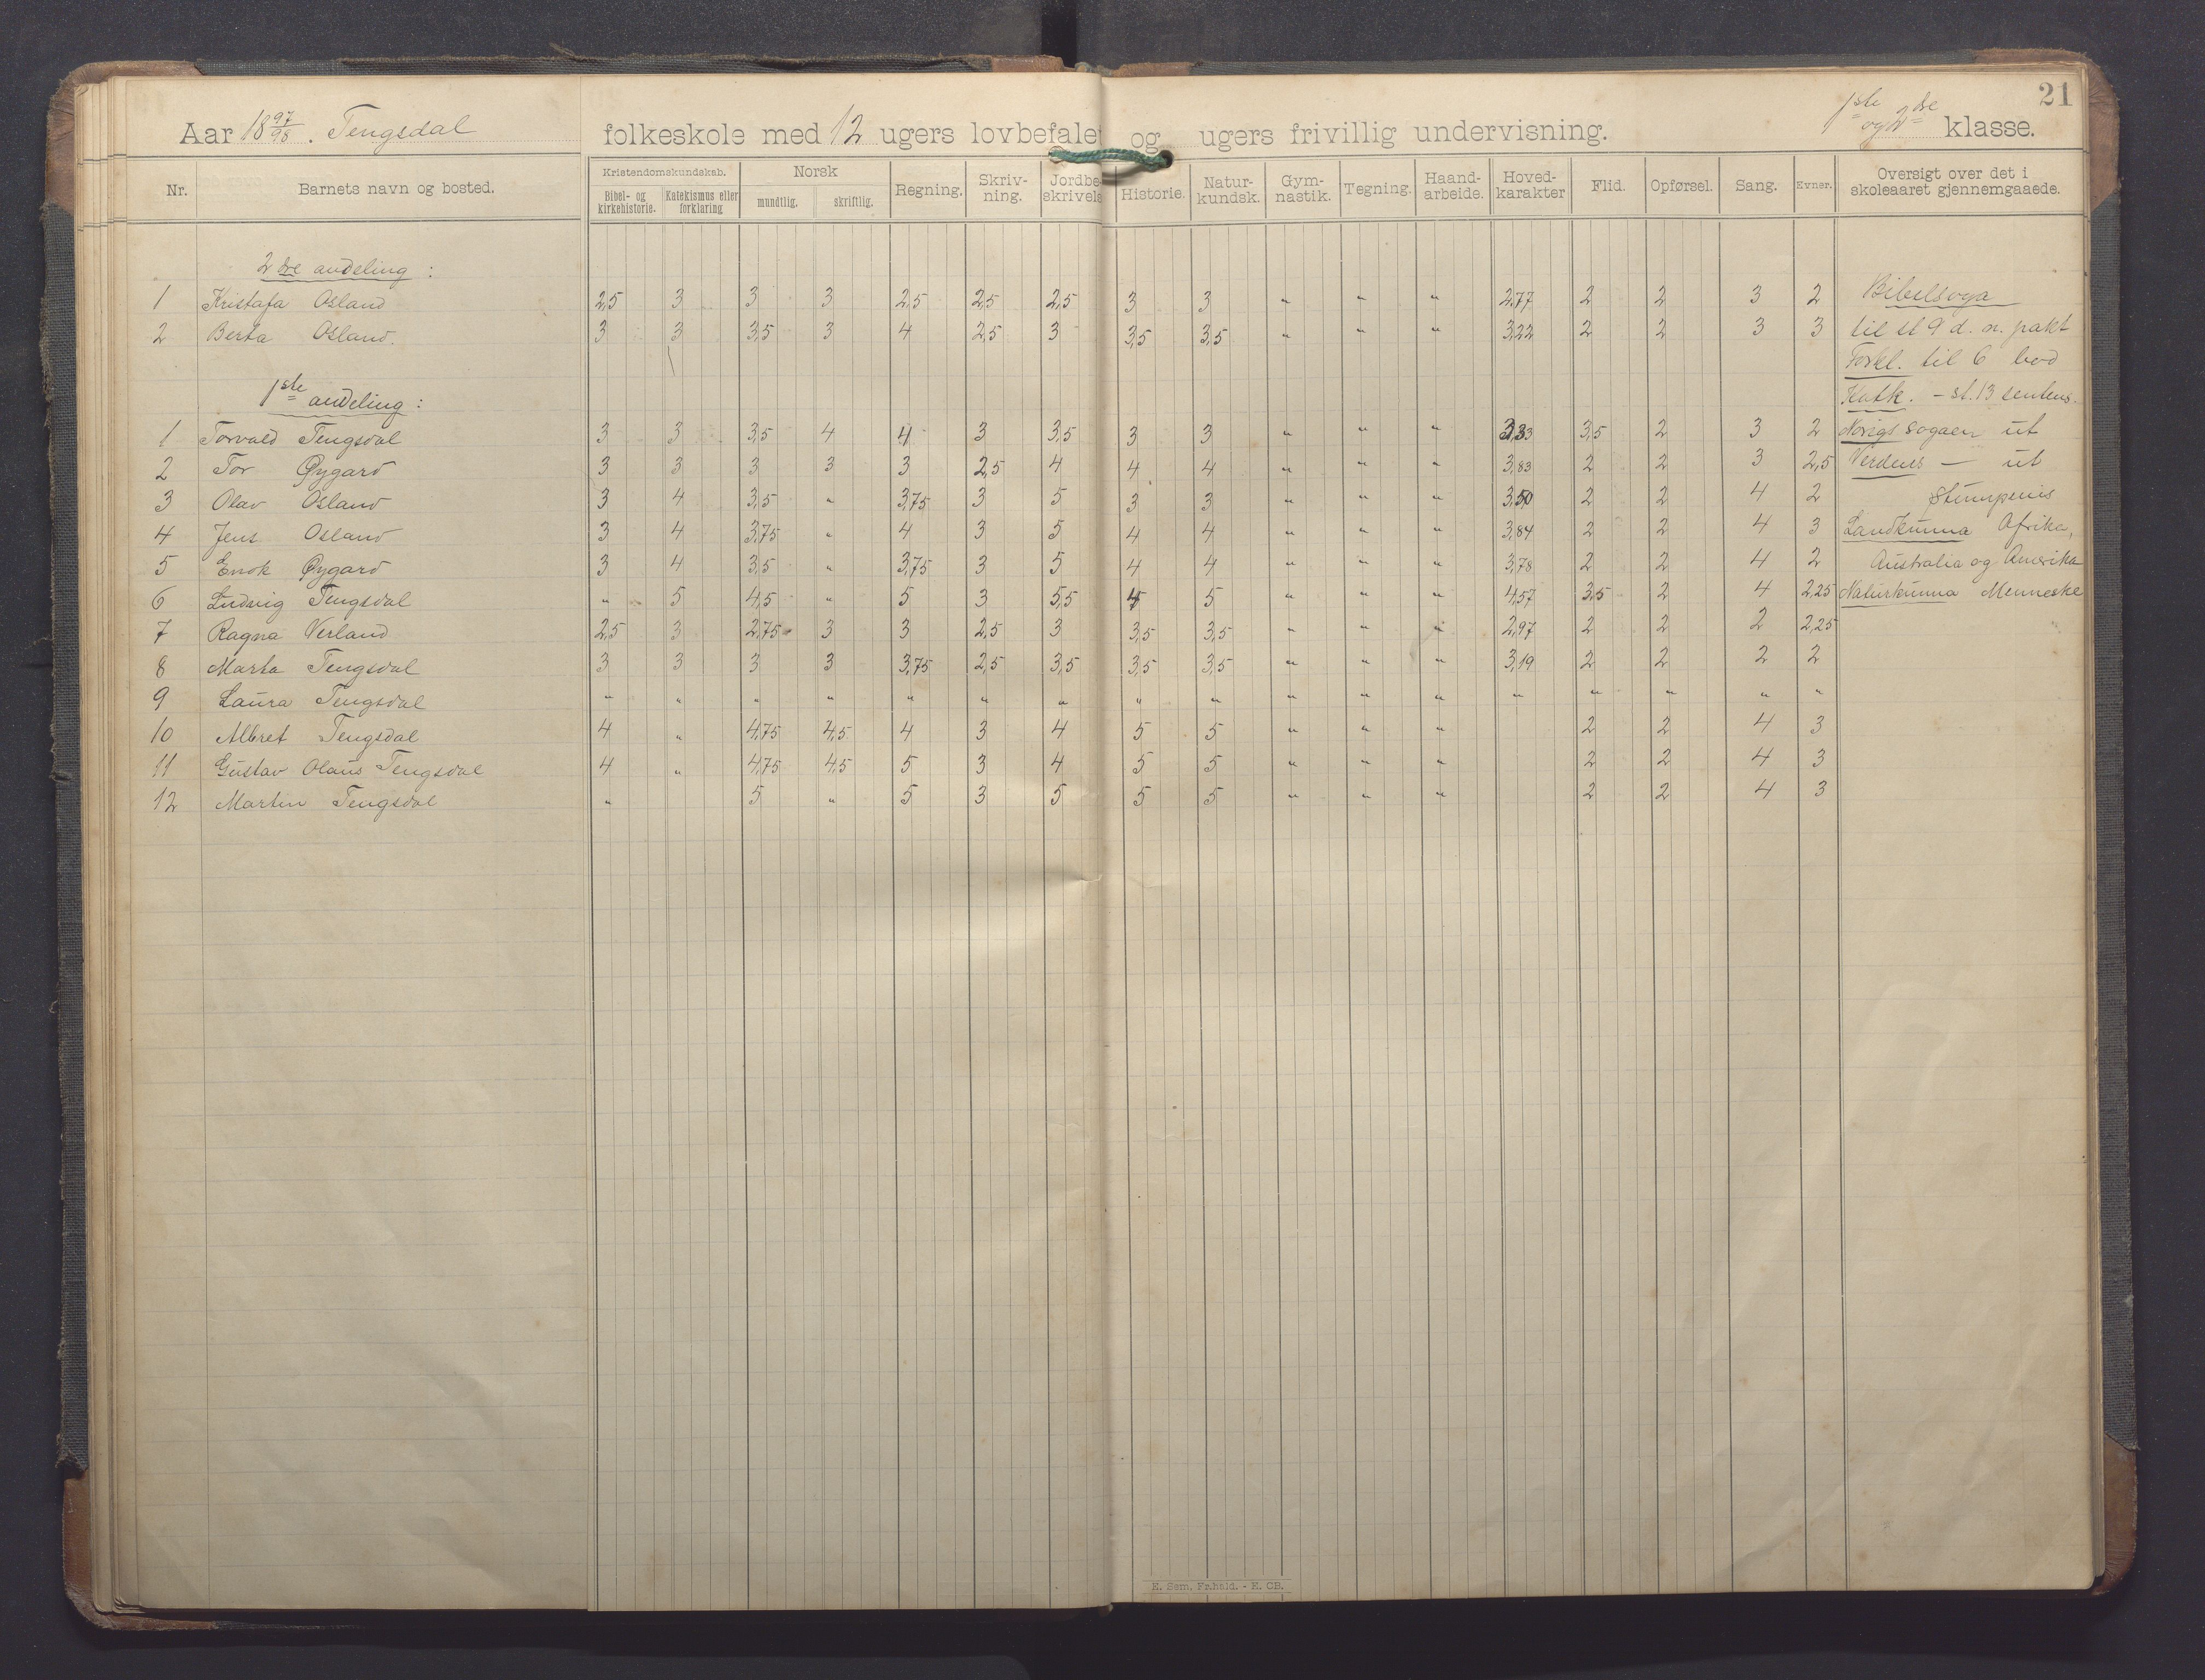 21
Aar 18 97/98. Tengsdal folkeskole med 12 ugers lovbefalet og ugers frivillig undervisning. 1ste og 2dre klasse.
Nr. Barnets navn og bosted. Kristendomskundskab. Bibel- og kirkehistorie. Katekismus eller forklaring Norsk mundtlig. skriftlig. Regning. Skriv-ning. Jordbe-skrivels Historie. Natur-kundsk. Gym-nastik. Tegning. Haand-arbeide. Hoved-karakter Flid. Opførsel. Sang. Evner. Oversigt over det i skoleaaret gjennemgaaede.
2dre avdeling:
1 Kristafa Osland 2,5 3 3 3 2,5 2,5 2,5 3 3 " " " 2,77 2 2 3 2 Bibelsoga
2 Berta Osland. 3 3 3,5 3 4 2,5 3 3,5 3,5 " " " 3,22 2 2 3 3 til st 9 d. n. pakt
Forkl. til 6 bod
1ste avdeling: Katk. - st. 13 sentens.
1 Torvald Tengsdal 3 3 3,5 4 4 3 3,5 3 3 " " " 3,33 3,5 2 3 2 Norigs sogaen ut
2 Tor Øygard 3 3 3 3 3 2,5 4 4 4 " " " 3,83 2 2 3 2,5 Verdens — ut
3 Olav Osland 3 4 3,5 " 3,75 3 5 3 3 " " " 3,50 2 2 4 2
4 Jens Osland 3 4 3,75 " 4 3 5 4 4 " " " 3,84 2 2 4 3 Landkunna Afrika,
5 Enok Øygard 3 4 3,5 " 3,75 3 5 4 4 " " " 3,78 2 2 4 2 Australia og Amerika
6 Ludvig Tengsdal " 5 4,5 " 5 3 5,5 4 5 " " " 4,57 3,5 2 4 2,25 Naturkunna Menneske
7 Ragna Verland 2,5 3 2,75 3 3 2,5 3 3,5 3,5 " " " 2,97 2 2 2 2,25
8 Marta Tengsdal 3 3 3 3 3,75 2,5 3,5 3,5 3,5 " " " 3,19 2 2 2 2
9 Laura Tengsdal " " " " " " " " " " " " " " " " "
10 Albret Tengsdal 4 " 4,75 4,5 4 3 4 5 5 " " " 2 2 4 3
11 Gustav Olaus Tengsdal 4 " 4,75 4,5 5 3 4 5 5 " " " 2 2 4 3
12 Martin Tengsdal " 5 " 5 3 5 5 5 " " " 2 2 4 3
E. Sem, Fr.hald. - E. CB.